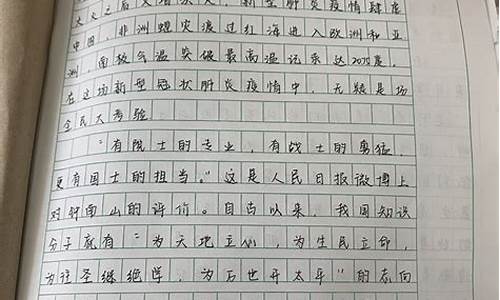 火灾之后又增添人，新型肺炎疫情肆虐
中国，非洲蝗灾渡过红海进入欧洲和亚
洲，南极气温突破最高温记录达20.75度。
在这场新型冠状肺炎疫情中，无疑是场
全民大考验
“有院士的专业，有战士的勇猛，
更有国士的担当。”这是人民日报微博上
对钟南山的评价。自古以来，我国知识
分子就有“为天地立心，为生民立命，
为往圣继绝学，为万世开太平”的志向